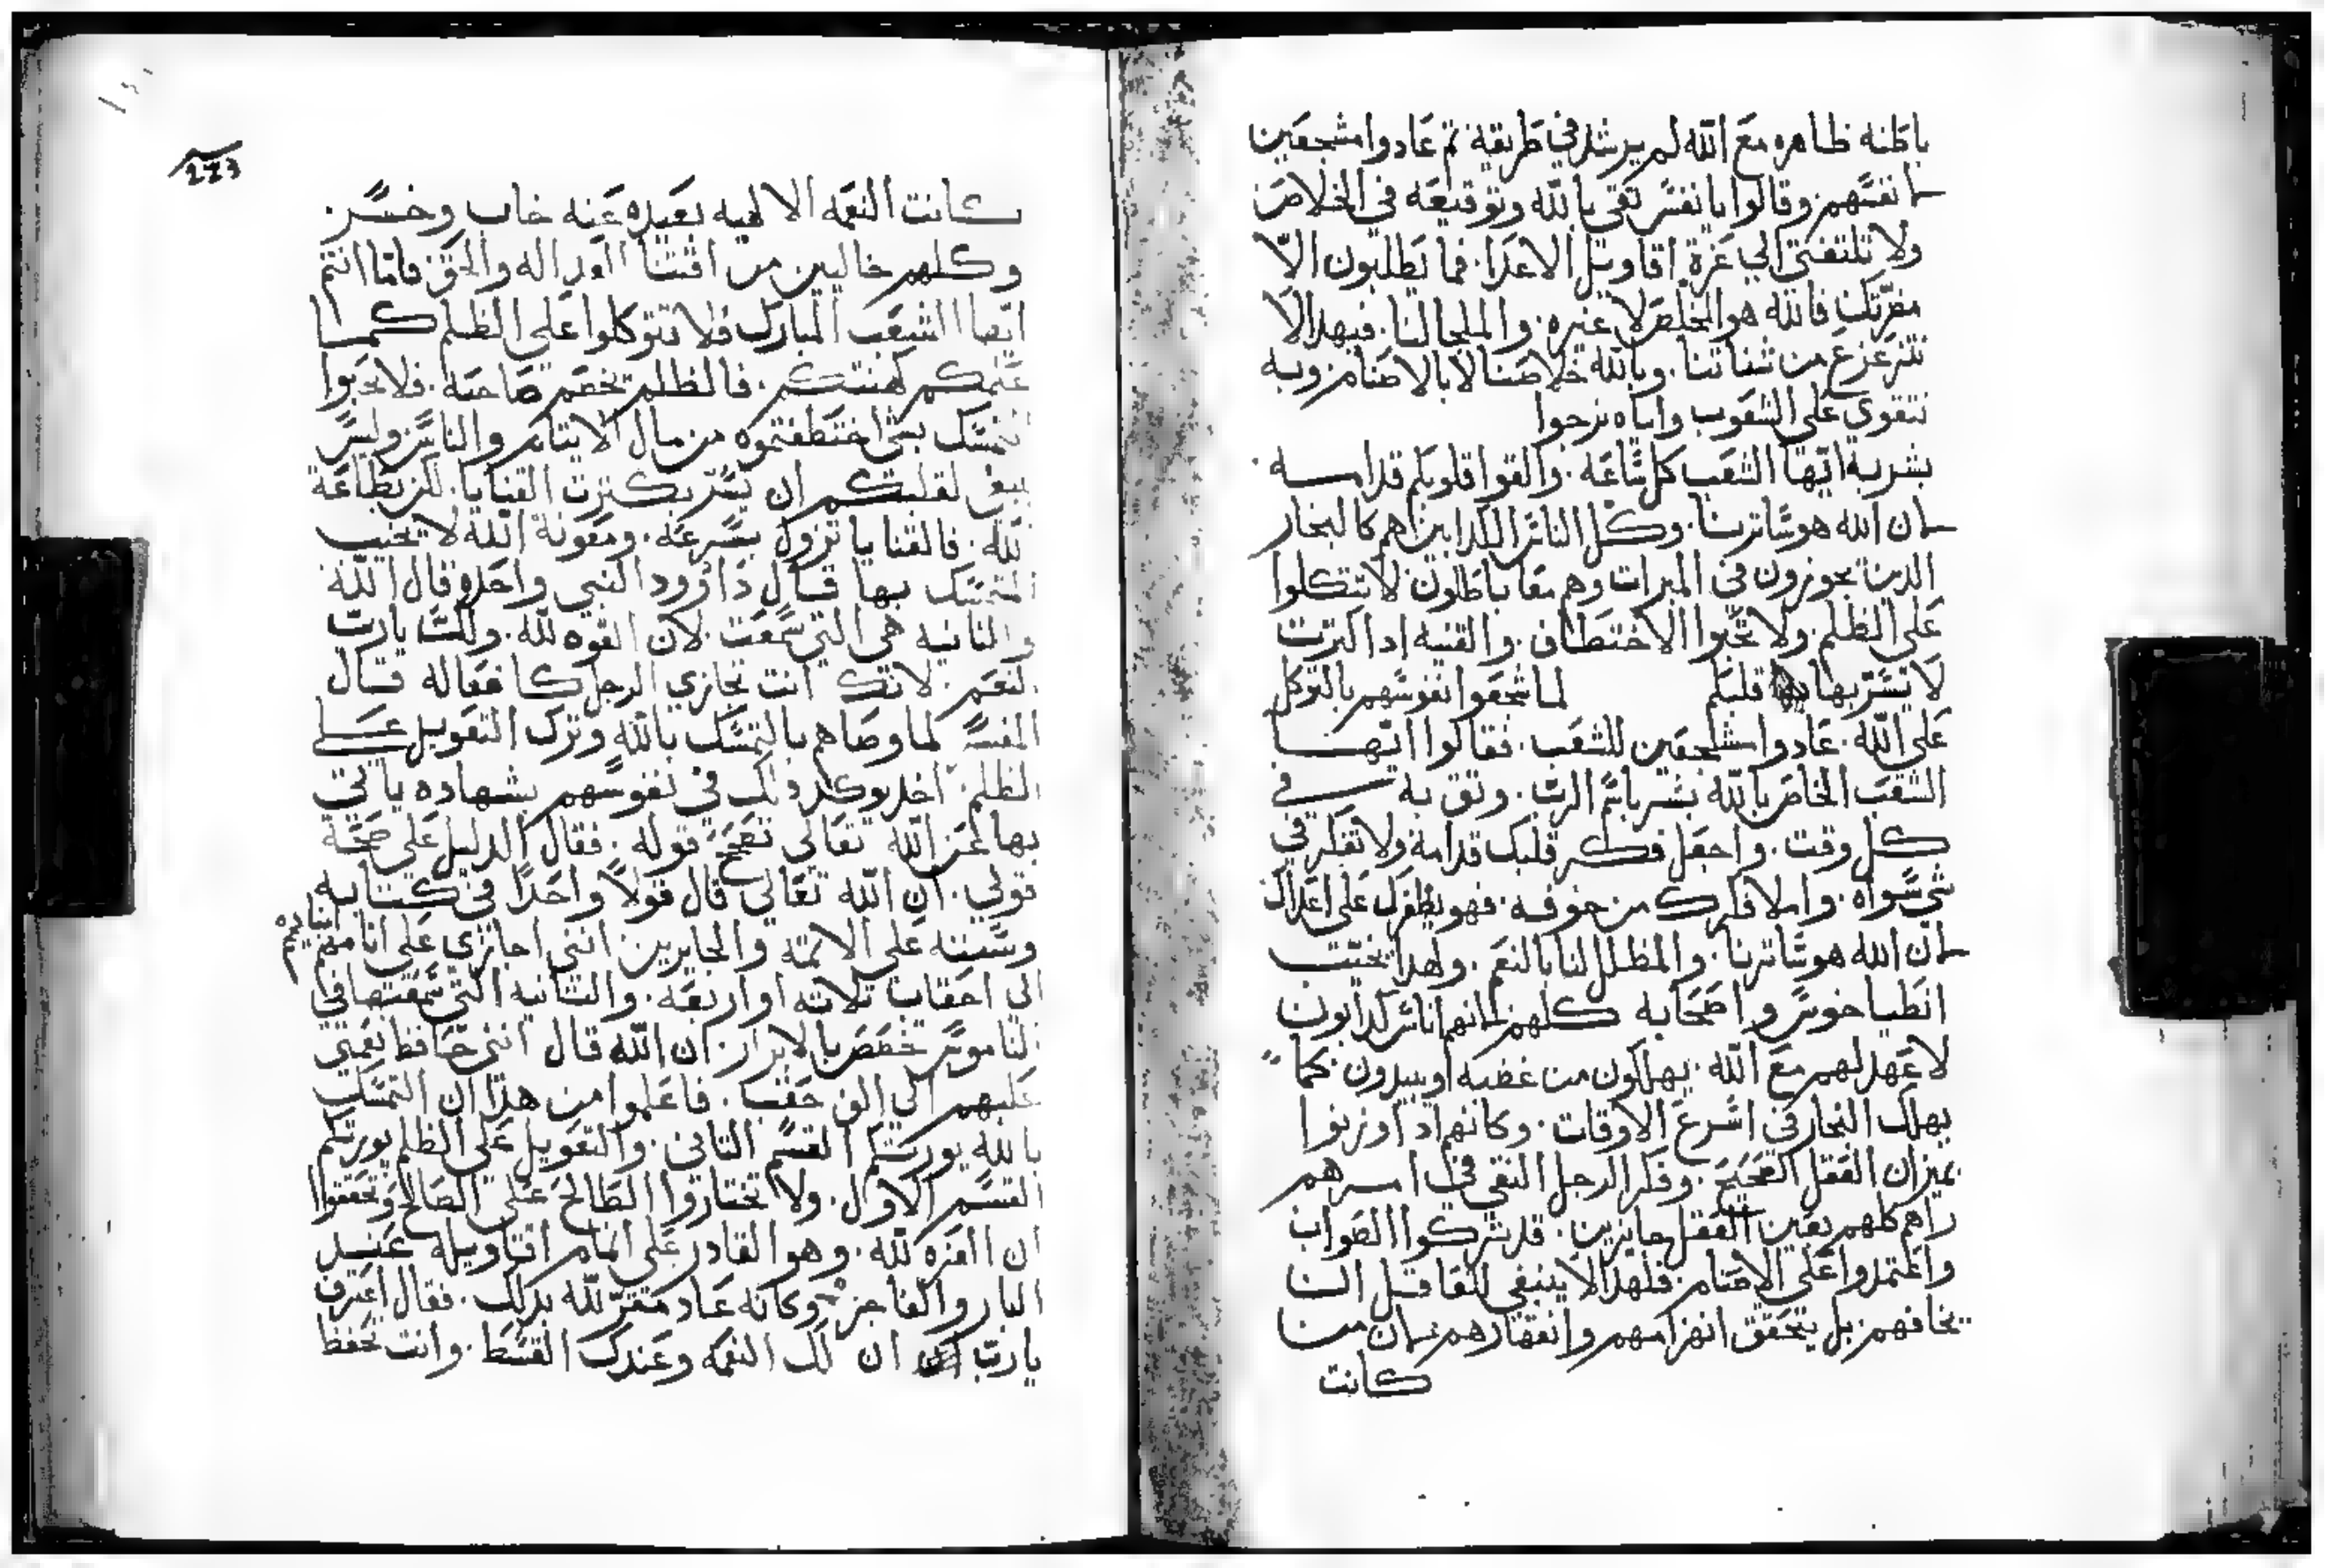 باطنه ظاهره مع الله لم يرشد في طريقة ثم عادوا مشجعين
انفسهم وقالوا يا نفس تقي بالله وتوقيعه في الخلاص
ولا تلتفتي الي غرة اقاويل الاعدا. فما يطلبون الا
مضرتك فالله هو المخلص لا غيره. والملجا لنا. فبهدا لا
نتزعزع من تباتنا. وبالله خلاصنا لا بالاصنام وبه
نتقوي على الشعوب واياه نرجوا
بشر به ايها الشعب كل ساعه. والقوا قلوبكم قدامه
ان الله هو ساترنا. وكل الناس الكدابين هم كالبخار
الدين يجوزون في الميزات وهم معا باطلون لا تتكلوا
على الظلم. ولا تحبوا الاختطاف. والقنيه ادا كترت
لا يستر بها قلبكم لما شجعوا نفوسهم بالتوكل
على الله. عادوا مشجعين للشعب. فقالوا ايها
الشعب الخاص بالله بشر باسم الرب. وتق به في
كل وقت. واجعل فكر قلبك قدامه ولا تفكر في
شي سواه. واملا فكرك من خوفه. فهو يظفرك على اعدايك
ان الله هو ساترنا. والمظلل لنا بالنعم. ولهدا نجتنب
انطياخوس واصحابه كلهم لانهم اناس كدابون
لا عهد لهم مع الله. يهلكون من غضبه او يبيدون. كما
يهلك البخار في اسرع الاوقات. وكانهم ادا وزنوا
بميزان العقل الصحيح. وفكر الرجل النقي في امرهم
راهم كلهم بعين العقل جايزين. قد تركوا الصواب
واعتمدوا على الاصنام. فلهدا لا ينبغي للعاقل ان
يخافهم. بل يتحقق انهزامهم وانقهارهم. لان من
كانت
273
كانت النعمه الالهيه بعيده عنه خاب وخسر.
وكلهم خاليين من اقتنا العداله والحق. فاما انتم
ايها الشعب المبارك فلا تتوكلوا على الظلم كما
علمكم كهنتكم. فالظلم يخصم صاحبه. فلا تحبوا
التمسك بشي اختطفتموه من مال الايتام والناس وليس
ينبغي لقلبكم ان يستر بكترت القنايا. لكن بطاعة
الله. فالقنايا تزول بسرعه. ومعونة الله لا تخيب
المتمسك بها قال داوود النبي واحده قال الله
والتانيه هي التي سمعت. لان القوه لله. ولك يا رب
النعم. لانك انت تجازي الرجل كافعاله قال
المفسر لما وصاهم بالتمسك بالله وترك التعويل على
الظلم. اخد يوكد دلك في نفوسهم بشهاده ياتي
بها عن الله تعالي تصحح قوله. فقال الدليل على صحة
قولي. ان الله تعالي قال قولا واحدا في كتابه
وسننه على الاتمه والجايرين انني اجازي على اتامهم ابنايهم
الى احقاب تلاته او اربعه. والتانيه التي سمعتها في
الناموس تختص بالابرار. ان الله قال انني حافظ نعمتي
عليهم الي الف حقب. فاعلموا من هدا ان التمسك
بالله يورتكم القسم التاني. والتعويل على الظلم يورتكم
القسم الاول. ولا تختاروا الطالح على الصالح وتحققوا
ان العزه لله. وهو القادر على اتمام اقاويله عند
البار والفاجر. وكانه عاد مقر لله بدلك. فقال اعترف
يا رب ان لك النعمه وعندك القسط. وانت تحفظ